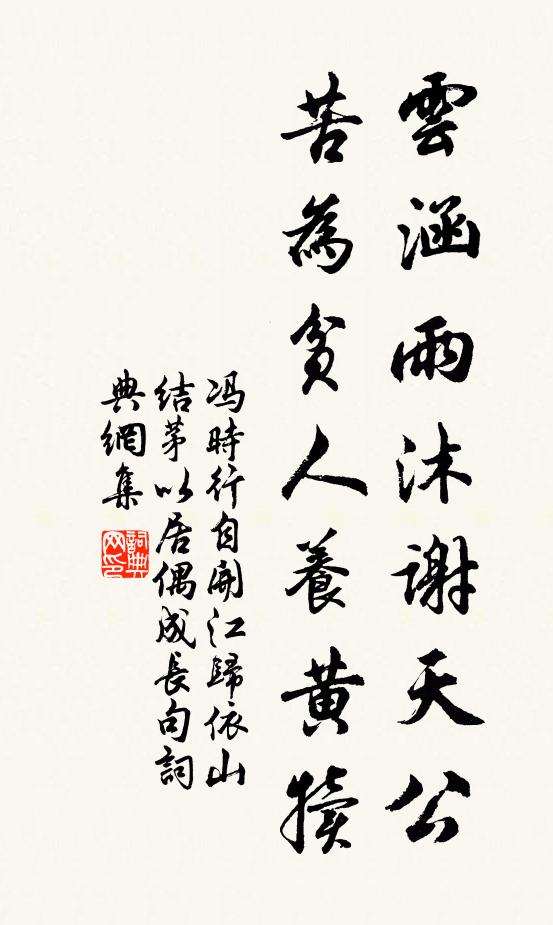 雲涵雨沐謝天公
苦為貧人養黃犢
冯時行自開江歸依山
結茅以居偶成長句詞
典網集
詞典
网印